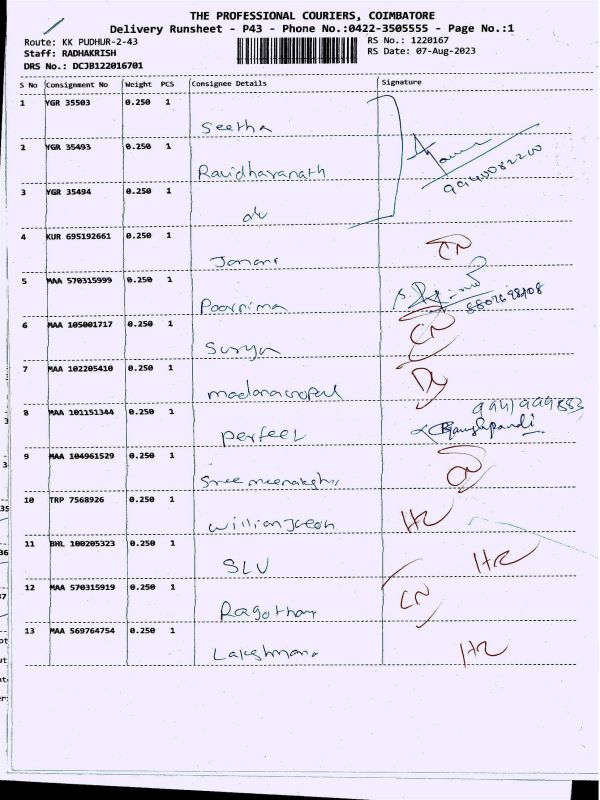 THE PROFESSIONAL COURIERS, COIMBATORE
Delivery Runsheet - P43 - Phone No.:0422-3505555 - Page No.:1
Route: KK PUDHUR-2-43
RS No.: 1220167
Staff: RADHAKRISH
RS Date: 07-Aug-2023
DRS No.: DCJB122016701
S No Consignment No Weight PCS Consignee Details Signature
1 YGR 35503 0.250 1
Seetha
2 YGR 35493 0.250 1
Ravidharanath
9940082200
3 YGR 35494 0.250 1
do
4 KUR 695192661 0.250 1
CN
Janani
5 MAA 570315999 0.250 1
Poornima
8807698408
6 MAA 105001717 0.250 1
CN
Surya
7 MAA 102205410 0.250 1
DL
madanagopal
8 MAA 101151344 0.250 1
9941999883
perfect
9 MAA 104961529 0.250 1
CN
Sree meenakshi
10 TRP 7568926 0.250 1
HR
William Jacob
11 BHL 100205323 0.250 1
HR
SLV
12 MAA 570315919 0.250 1
CN
Ragotham
13 MAA 569764754 0.250 1
HR
Lakshmana